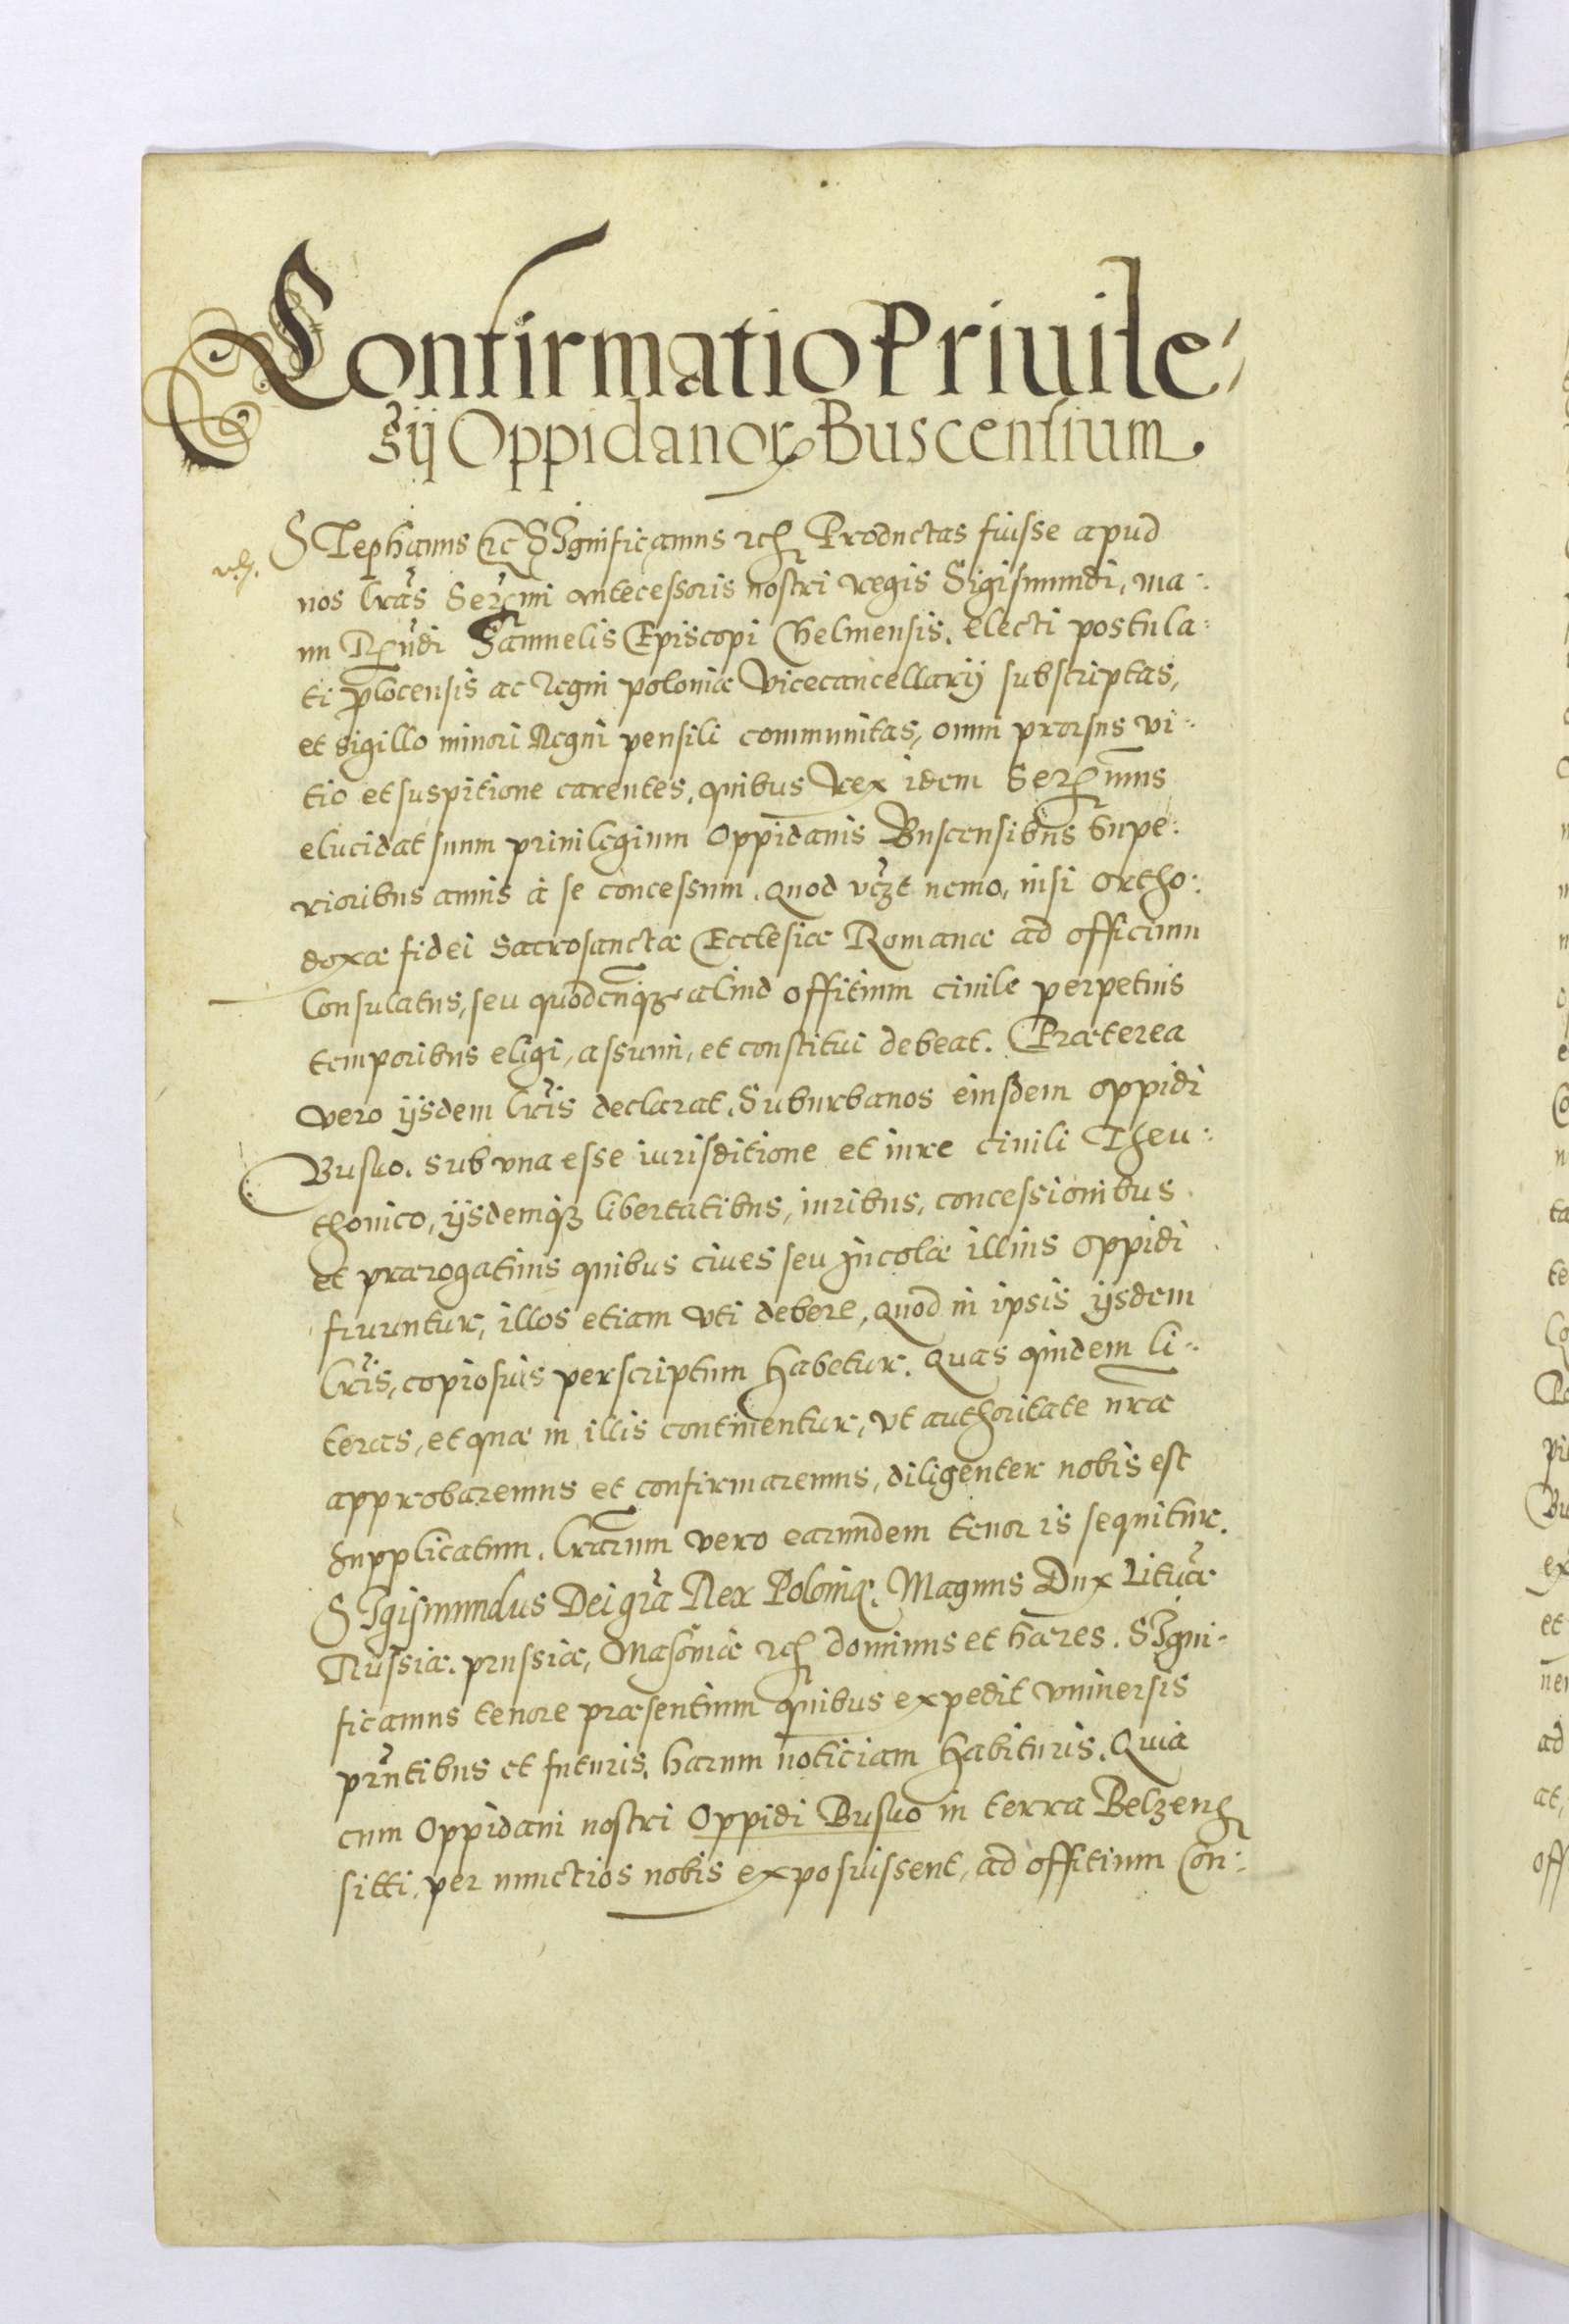 Confirmatio Priuile,
gij Oppidanorꝝ Buscensium.
STephanus etc SIgnificamus etc Productas fuisse apud
nos lras Sermi antecessoris nostri regis Sigismundi, ma:
nu Rndi Samuelis Episcopi Chelmensis, electi postula:
ti plocensis ac regni poloniæ Vicecancellarij subscriptas,
et sigillo minori Regni pensili communitas, omni prorsus vi:
tio et suspitione carentes, quibus Rex idem Sermus
elucidat suum priuilegium Oppidanis Buscensibus supe:
rioribus annis à se concessum. Quod vczt nemo, nisi ortho:
doxæ fidei Sacrosanctæ Ecclesiæ Romanæ ad officium
Consulatus, seu quodcunqꝫ aliud offitium ciuile perpetuis
temporibus eligi, assumi, et constitui debeat. Præterea
vero ijsdem lris declarat, Suburbanos eiusdem oppidi
Busko, sub vna esse iurisditione et iure ciuili Theu:
thonico, ijsdemqꝫ libertatibus, iuribus, concessionibus
et prærogatiuis quibus ciues seu Incolæ illius oppidi
fruuntur, illos etiam vti debere, quod in ipsis ijsdem
lris, copiosius perscriptum habetur. Quas quidem li:
teras, et quæ in illis continentur, vt authoritate nra
approbaremus et confirmaremus, diligenter nobis est
supplicatum. lrarum vero earundem tenor is sequitur.
SIgismundus Dei gra Rex Poloniæ, Magnus Dux Lituæ
Russiæ, prussiæ, Masouiæ etc dominus et hæres. SIgni:
ficamus tenore præsentium quibus expedit vniuersis
prntibus et futuris, harum noticiam habituris. Quia
cum Oppidani nostri Oppidi Busko in terra Belzen
sitti, per nunctios nobis exposuissent, ad offitium Con: